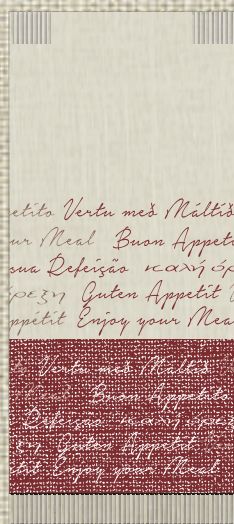 etito Vertu með Máltíð
ur Meal Buon Appeto
sua Refeição καλή όρ
ρεξη Guten Appetit
ppétit Enjoy your Mea
Vertu með Máltíð
Meal Buon Appetato
Refeição καλή όρεξ
ξη Guten Appetit
tit Enjoy your Meal